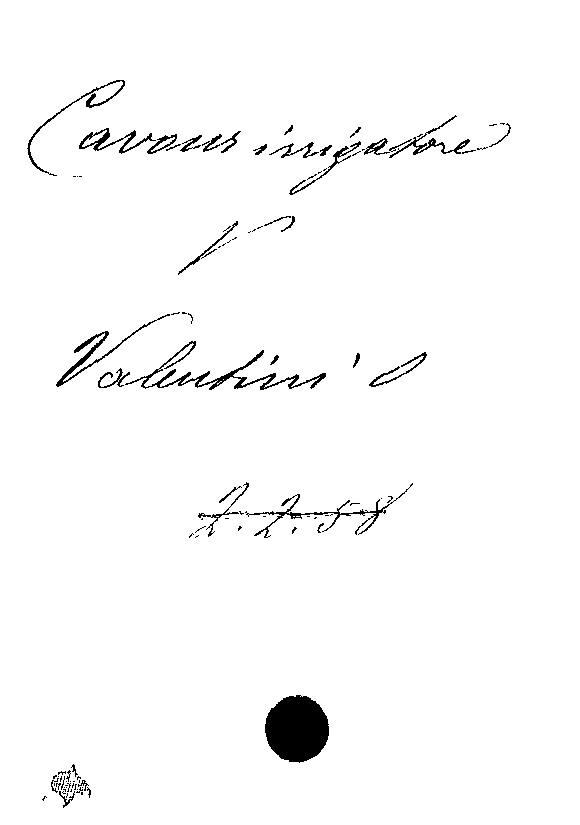 Cavour irrigatore
V
Valentini O
2.2.58